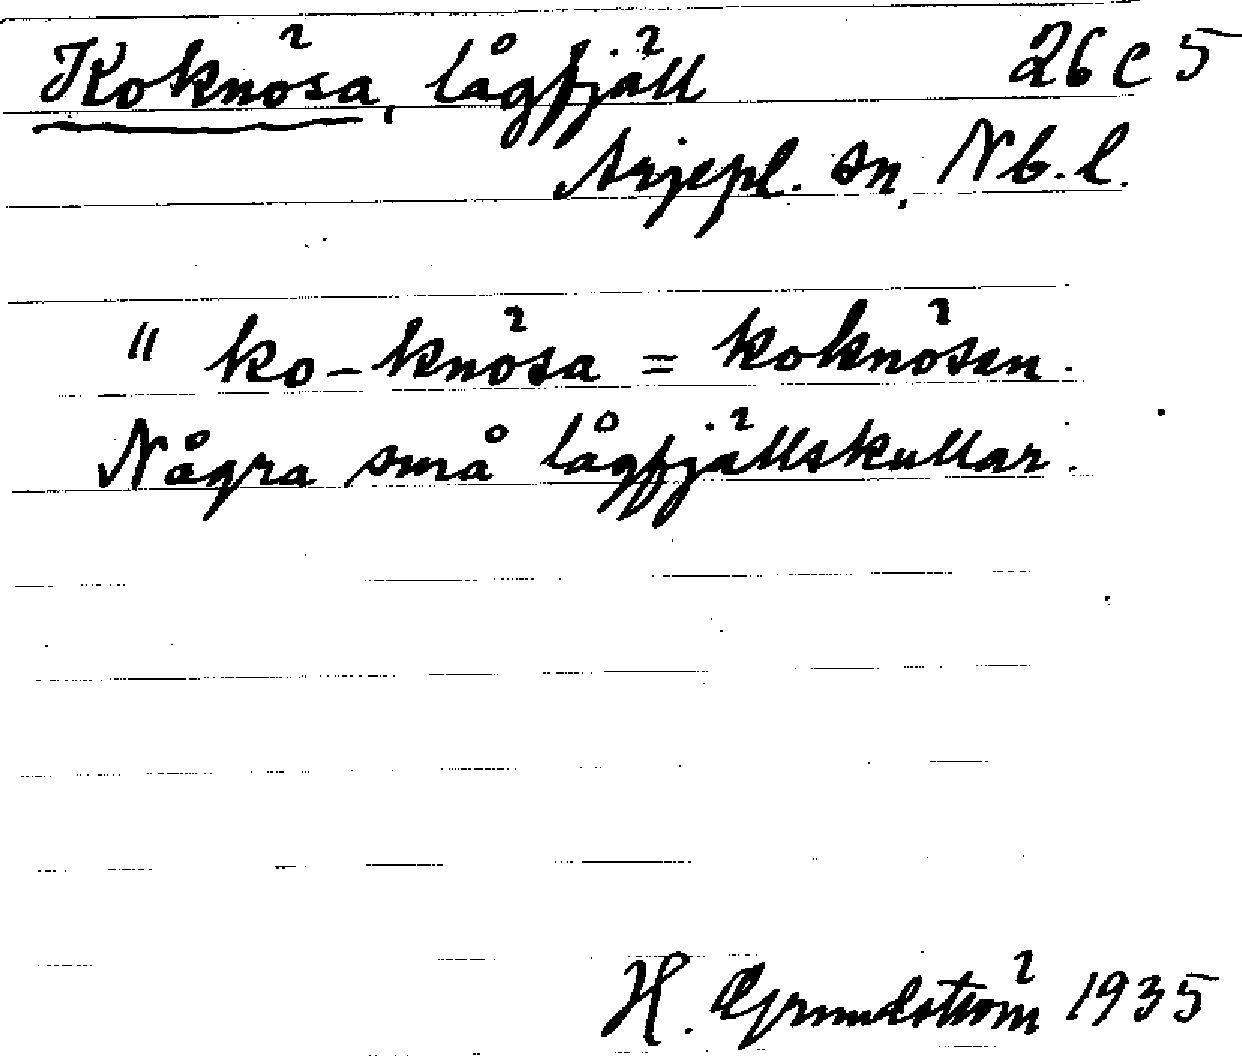 Koknösa, lågfjäll 26 C 5
Arjepl. sn, Nb. l.
" ko-knösa = koknösen.
Några små lågfjällskullar.
H. Grundström 1935